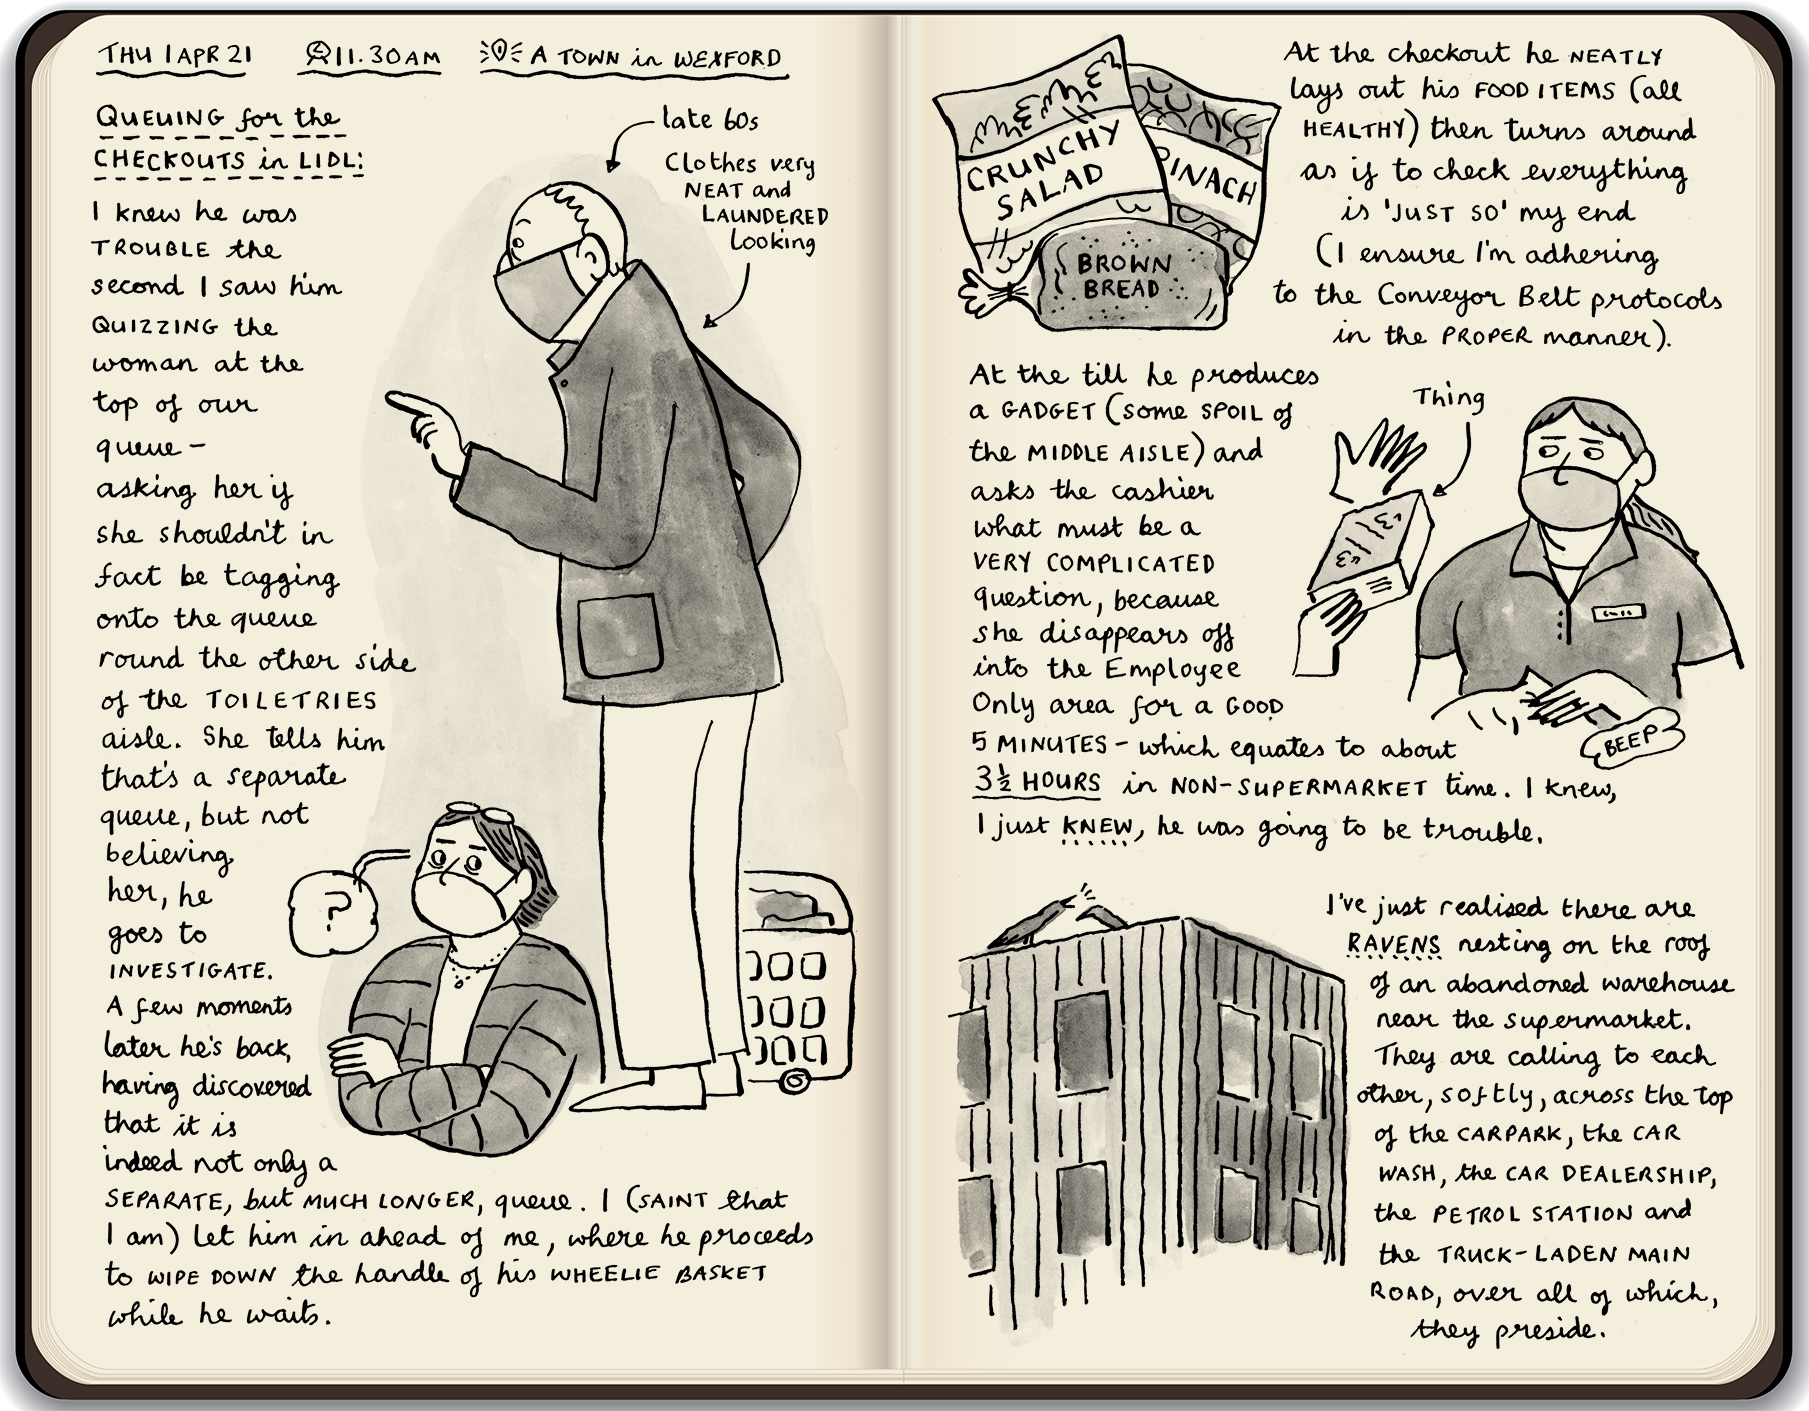 THU 1 APR 21
11.30AM
A TOWN in WEXFORD
QUEUING for the
CHECKOUTS in LIDL:
I knew he was
TROUBLE the
second I saw him
QUIZZING the
woman at the
top of our
queue –
asking her if
she shouldn't in
fact be tagging
onto the queue
round the other side
of the TOILETRIES
aisle. She tells him
that's a separate
queue, but not
believing
her, he
goes to
INVESTIGATE.
A few moments
later he's back,
having discovered
that it is
indeed not only a
SEPARATE, but MUCH LONGER, queue. I (SAINT that
I am) let him in ahead of me, where he proceeds
to WIPE DOWN the handle of his WHEELIE BASKET
while he waits.
late 60s
Clothes very
NEAT and
LAUNDERED
looking
?
CRUNCHY
SALAD
PINACH
BROWN
BREAD
At the checkout he NEATLY
lays out his FOOD ITEMS (all
HEALTHY) then turns around
as if to check everything
is 'JUST SO' my end
(I ensure I'm adhering
to the Conveyor Belt protocols
in the PROPER manner).
At the till he produces
a GADGET (some SPOIL of
the MIDDLE AISLE) and
asks the cashier
what must be a
VERY COMPLICATED
question, because
she disappears off
into the Employee
Only area for a GOOD
5 MINUTES – which equates to about
3½ HOURS in NON-SUPERMARKET time. I knew,
I just KNEW, he was going to be trouble.
Thing
BEEP
I've just realised there are
RAVENS nesting on the roof
of an abandoned warehouse
near the supermarket.
They are calling to each
other, softly, across the top
of the CARPARK, the CAR
WASH, the CAR DEALERSHIP,
the PETROL STATION and
the TRUCK-LADEN MAIN
ROAD, over all of which,
they preside.